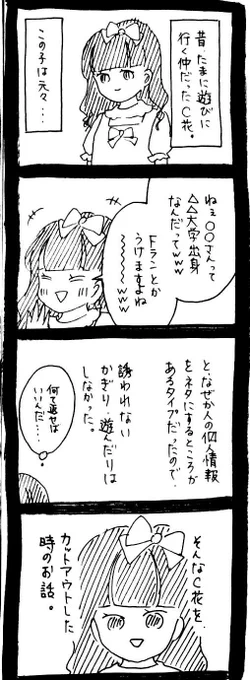 昔、たまに遊びに
行く仲だったC花。
この子は元々・・・
ねぇ〇〇さんって
△△大学出身
なんだってｗｗｗ
Fランとか
うけますよね
～～～～～ｗｗ
と、なぜか人の個人情報
をネタにするところが
あるタイプだったので、
誘われない
かぎり、遊んだりは
しなかった。
何て返せば
いいんだ・・・
そんなC花を、
カットアウトした
時のお話。